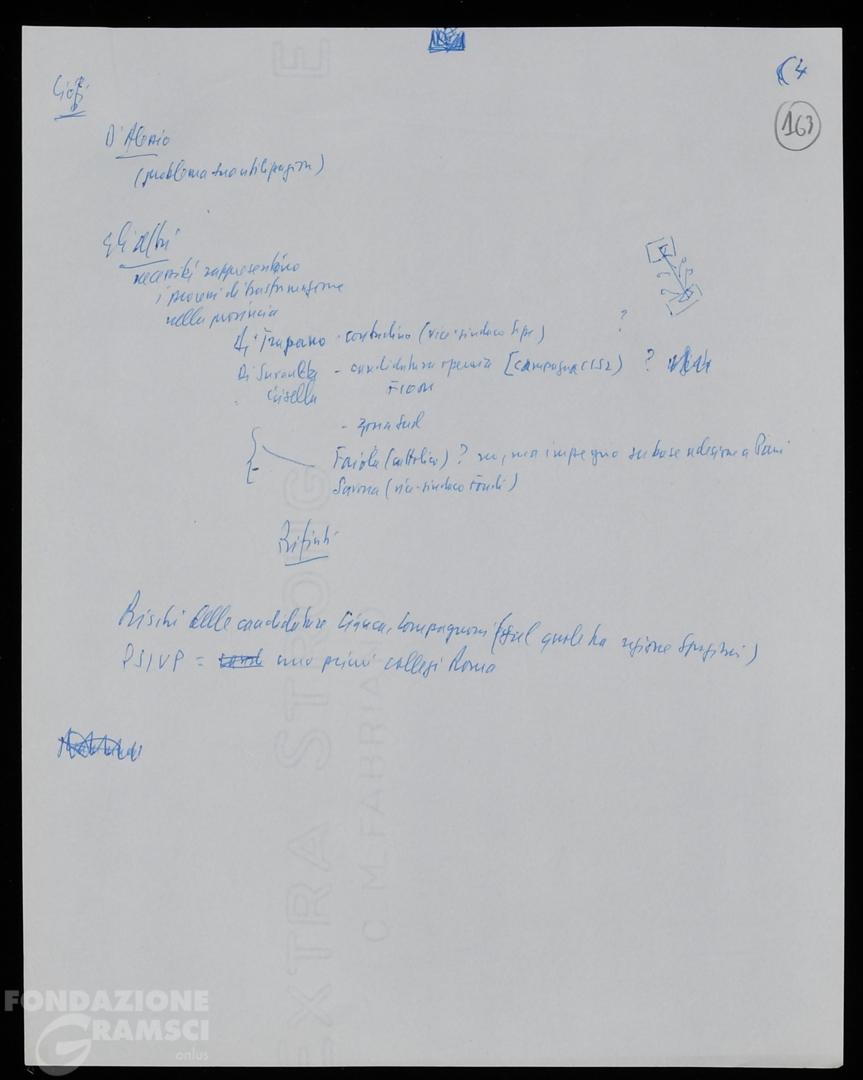 4
163
D'Alessio
(problema sua utilizzazione)
gli altri
necessità rappresentino
i processi di trasformazione
nella provincia
Di Trapano - contadino (vice-sindaco Sezze) ?
- candidatura operaia [campagna CISL) ?
Gisella FIOM
- zona sud
Faiola (cattolico) ? no, ma impegno su base adesione a Parri
Savona (vice-sindaco Fondi)
Rifiuti
Rischi delle candidature Cianca, Compagnoni (sul quale ha ragione
PSIUP = uno primi collegi Roma
EXTRA STRONG
C. M. FABRIANO
FONDAZIONE
GRAMSCI
onlus